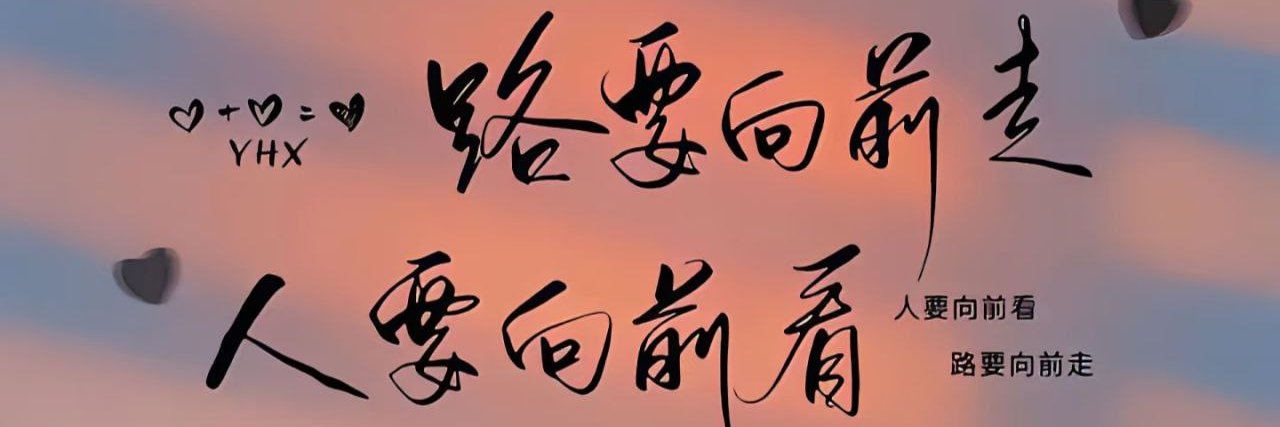 路要向前走
♡+♡=♥
YHX
人要向前看
人要向前看
路要向前走